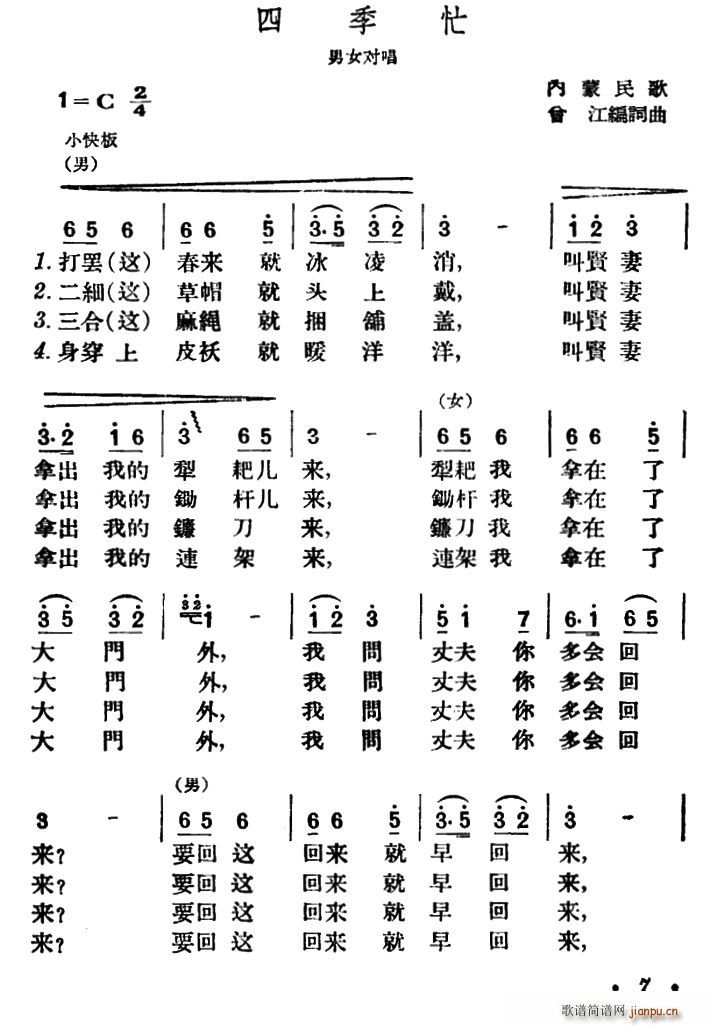 四季忙
男女对唱
1=C 2/4
内蒙民歌
曾 江編詞曲
小快板
(男)
6 5 6 | 6 6 5 | 3·5 3 2 | 3 - | 1 2 3 |
1.打罢(这) 春来 就 冰 凌 消, 叫賢妻
2.二細(这) 草帽 就 头 上 戴, 叫賢妻
3.三合(这) 麻繩 就 捆 舖 盖, 叫賢妻
4.身穿上 皮袄 就 暖 洋 洋, 叫賢妻
(女)
3·2 1 6 | 3 6 5 | 3 - | 6 5 6 | 6 6 5 |
拿出 我的 犁 耙儿 来, 犁耙我 拿在 了
拿出 我的 鋤 杆儿 来, 鋤杆我 拿在 了
拿出 我的 鐮 刀 来, 鐮刀我 拿在 了
拿出 我的 連 架 来, 連架我 拿在 了
3 5 3 2 | 3 2 1 - | 1 2 3 | 5 1 7 | 6·1 6 5 |
大 門 外, 我 問 丈夫 你 多会 回
大 門 外, 我 問 丈夫 你 多会 回
大 門 外, 我 問 丈夫 你 多会 回
大 門 外, 我 問 丈夫 你 多会 回
(男)
3 - | 6 5 6 | 6 6 5 | 3·5 3 2 | 3 - |
来? 要回 这 回来 就 早 回 来,
来? 要回 这 回来 就 早 回 来,
来? 要回 这 回来 就 早 回 来,
来? 要回 这 回来 就 早 回 来,
· 7 ·
歌谱简谱网 jianpu.cn